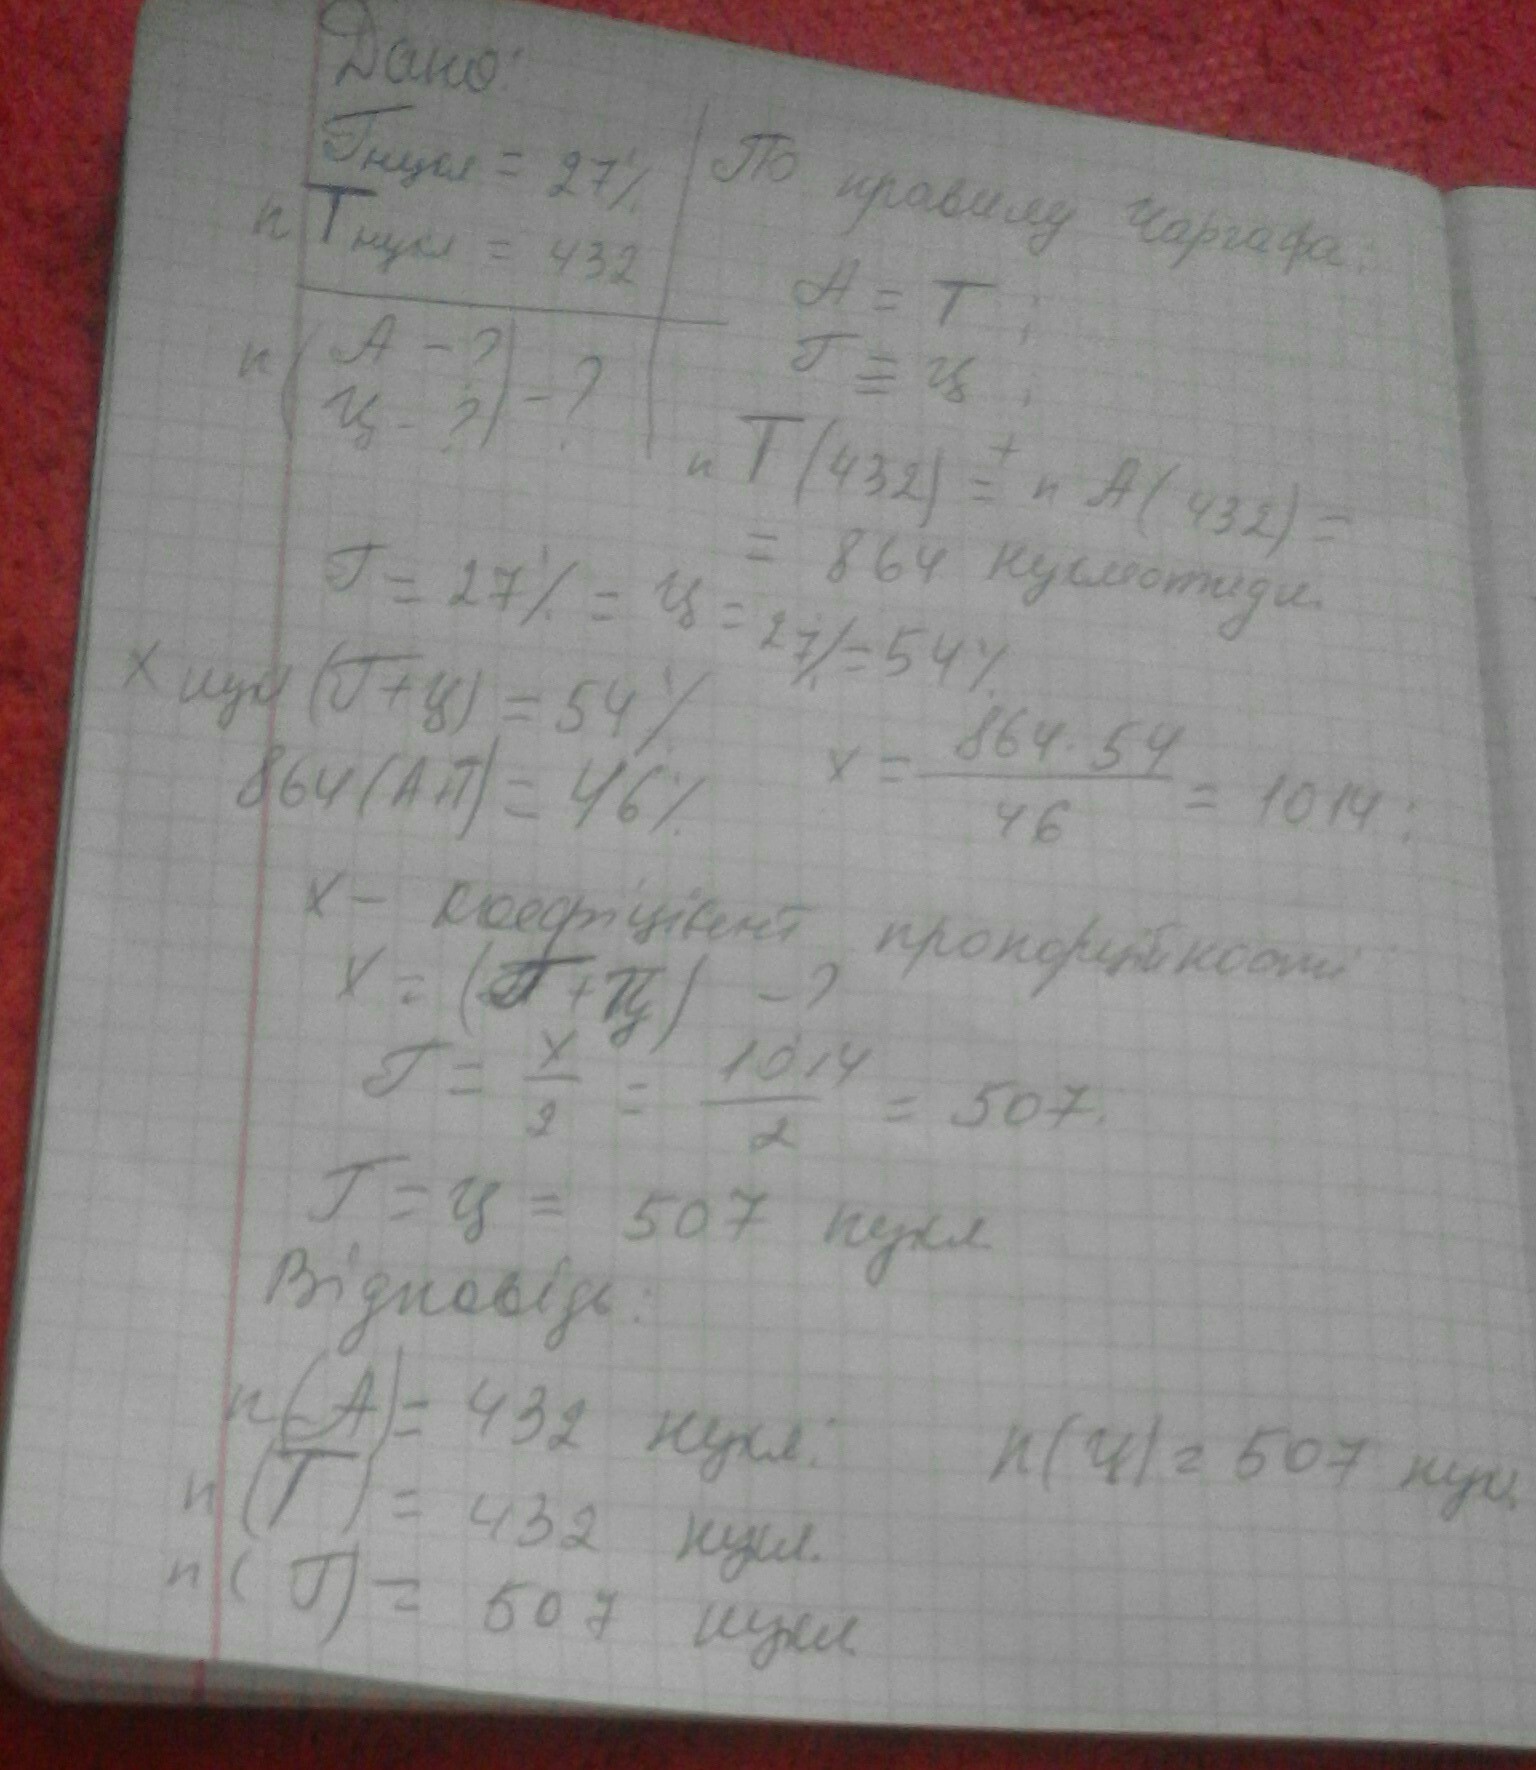 Дано:
Гнукл = 27%
n Tнукл = 432
n(А - ?
Ц - ?) - ?
По правилу Чаргафа:
А = Т ;
Г ≡ Ц ;
n T (432) + = n А (432) =
= 864 нуклеотиди.
Г = 27% = Ц = 27% = 54%
х нукл (Г+Ц) = 54%
864 (А+Т) = 46%
х = 864·54 / 46 = 1014 ;
х - коефіцієнт пропорційності
х = (Г + Ц) - ?
Г = х/2 = 1014/2 = 507.
Г = Ц = 507 нукл
Відповідь:
n(А) = 432 нукл.
n(Ц) = 507 нукл
n(Т) = 432 нукл.
n(Г) = 507 нукл